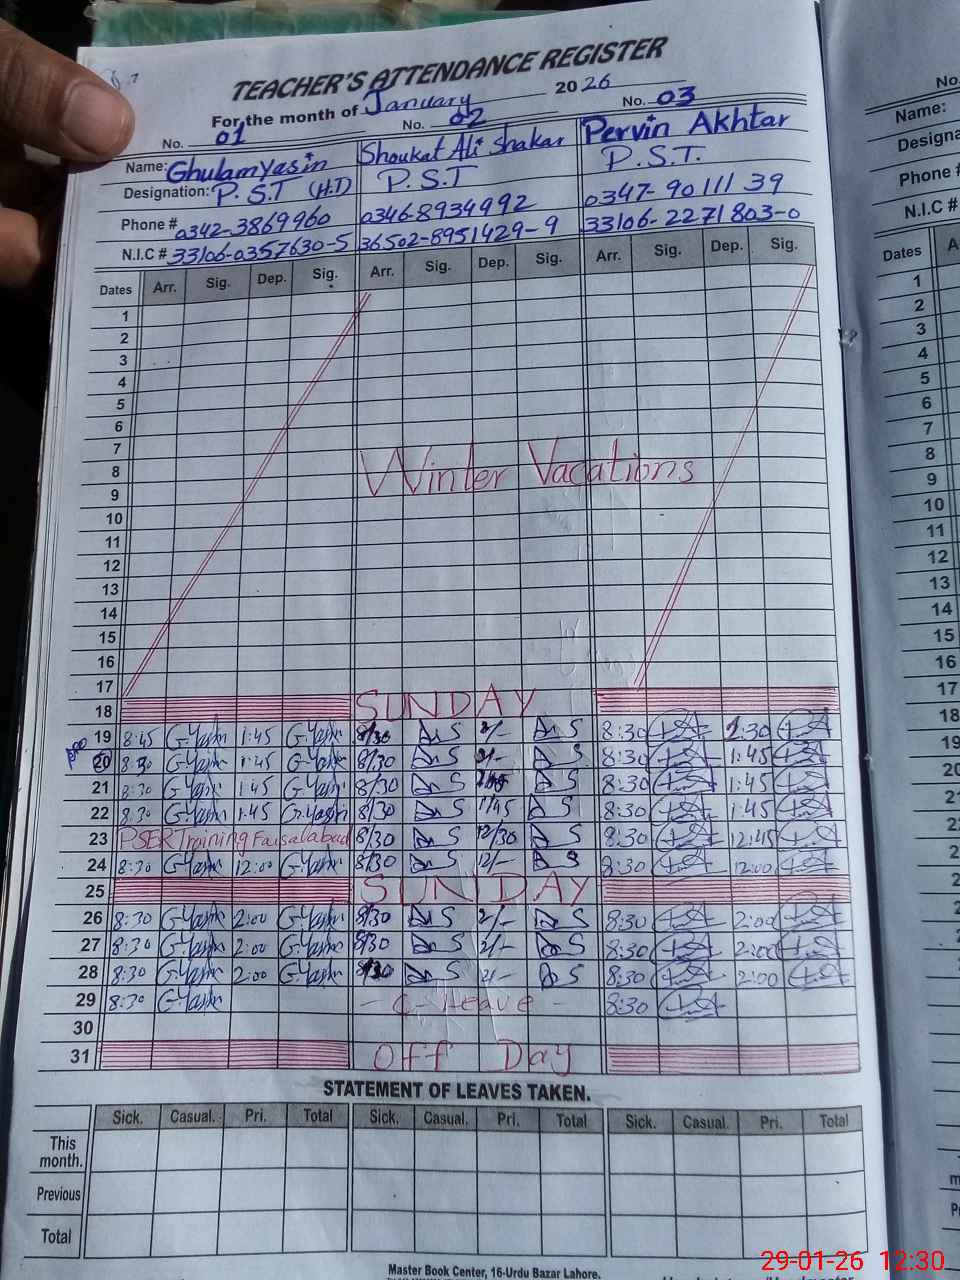 TEACHER'S ATTENDANCE REGISTER
For the month of January 2026
No. 01 No. 02 No. 03
Name: Ghulam Yasin Shoukat Ali Shakar Pervin Akhtar
Designation: P.S.T (H.T) P.S.T P.S.T.
Phone # 0342-3869960 0346-8934992 0347-9011139
N.I.C # 33106-0357630-5 36502-8951429-9 33106-2271803-0
Dates Arr. Sig. Dep. Sig. Arr. Sig. Dep. Sig. Arr. Sig. Dep. Sig.
1
2
3
4
5
6
7
8 Winter Vacations
9
10
11
12
13
14
15
16
17
18 SUNDAY
19 8:45 G.Yasin 1:45 G.Yasin 8/30 S S 8:30
20 8:30 G.Yasin 1:45 G.Yasin 8/30 S S 8:30 1:45
21 8:30 G.Yasin 1:45 G.Yasin 8/30 S S 8:30 1:45
22 8:30 G.Yasin 1:45 G.Yasin 8/30 S 1/45 S 8:30 1:45
23 PSER Training Faisalabad 8/30 S 12/30 S 8:30 12:45
24 8:30 G.Yasin 12:00 G.Yasin 8/30 S 12/- S 8:30 12:00
25 SUNDAY
26 8:30 G.Yasin 2:00 G.Yasin 8/30 S 2/- S 8:30 2:00
27 8:30 G.Yasin 2:00 G.Yasin 8/30 S 2/- S 8:30 2:00
28 8:30 G.Yasin 2:00 G.Yasin 8/30 S 2/- S 8:30 2:00
29 8:30 G.Yasin - C. Leave - 8:30
30
31 Off Day
STATEMENT OF LEAVES TAKEN.
Sick. Casual. Pri. Total Sick. Casual. Pri. Total Sick. Casual. Pri. Total
This month.
Previous
Total
Master Book Center, 16-Urdu Bazar Lahore.
29-01-26 12:30